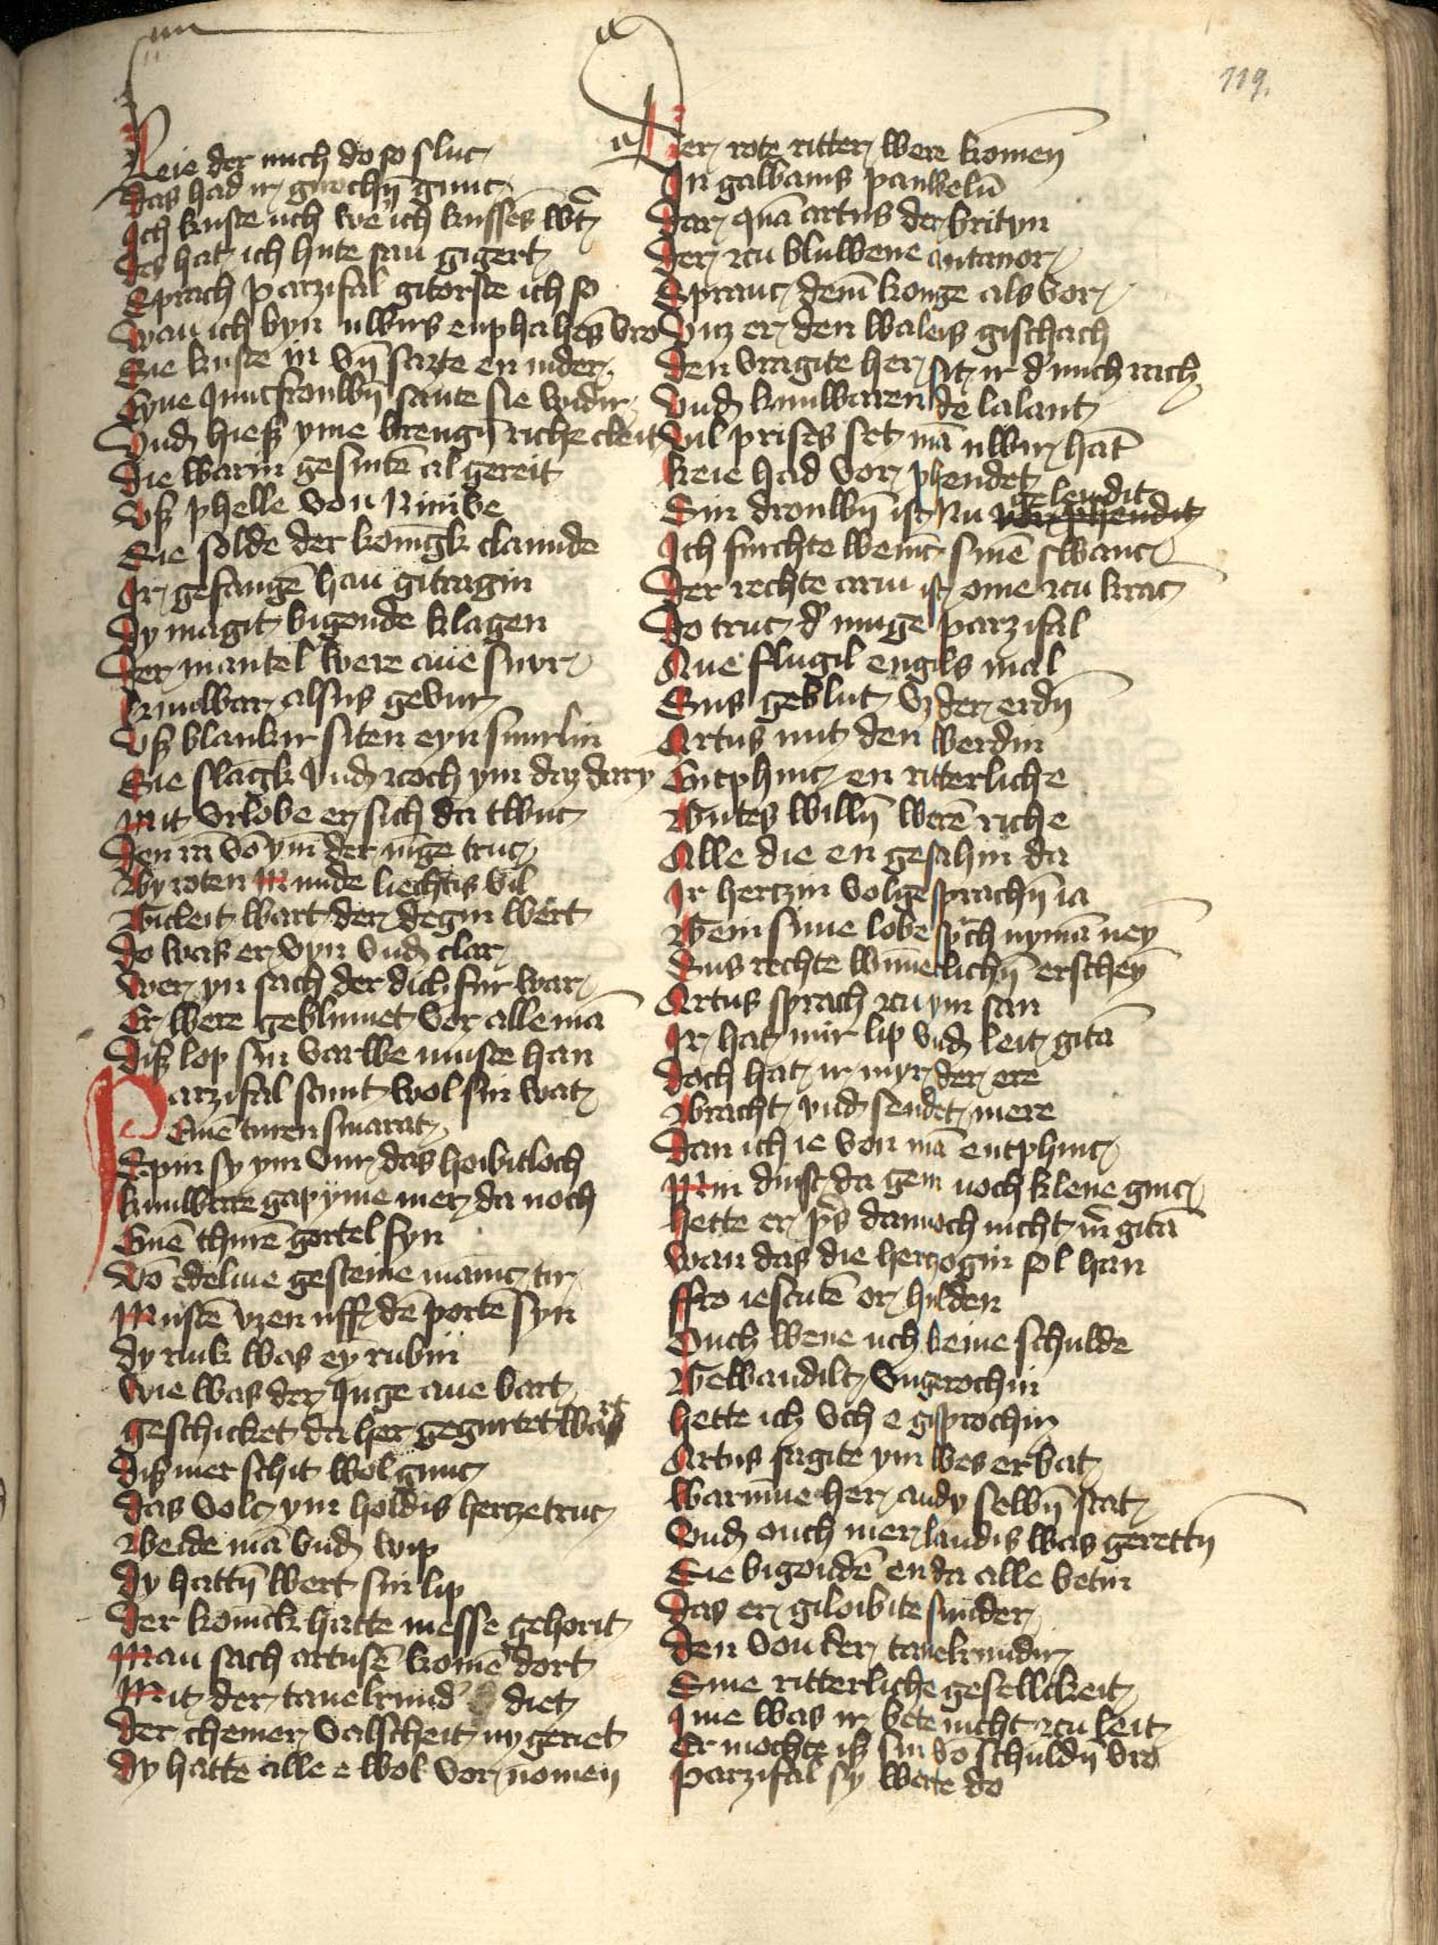 119.
Keie der mich do so sluc
das had ir girochn̄ gnuc
Ich kuste uch we ich kussēs wt̄
des hat ich hute san gigert
Sprach parzifal gitorste ich so
wan ich byn uwirs enphahēs vro
Sie kuste in vn̄ sazte en nider
Eyne Juncfrouwn̄ sante sie vndir
Vnd hiesz yme brengin̄ riche cleit
Die warin gesnitē al gereit
Vsz phelle von Ninive
Sie solde der konigk clamide
Ir gefangē han gitragin
Dy magit bigonde klagen
Der mantel were ane snor
kunwar alsus gevur
Vsz blankir siten eyn snurlin
Sie slagk vnd zoch ym daz dary
Mit vrlobe er sich da twuc
Den rā vō ym̄ der iūge truc
By roten Munde liechtis vil
Gicleit wart der degin wert
do was er vyn vnd clar
wer yn sach der dich fur war
Er were geblumet vor alle mā
Disz lop sin varwe muste han
Parzifal stunt wol sin wat
Einē turen smarat
Spin sy ym vur das hoibitloch
kunware gap yme mer da noch
Einē thurē gortel syn
Vō edelme gesteine manic tir
Mustē vzen uff dē portē syn
dy rink was ey rubin
wie was der Juge ane bart
geschicket da her gegurtet wart
Disz mer schit wol gnuc
das volc ym holdis hertze truc
Beide mā vnd wip
dy hattn̄ wert sin lip
Der konick hatte messe gehorit
Man sach artusē komē dort
Mit der tauelrund diet
der cheiner valscheit ny geriet
Dy hatte alle e wol vor nomen
Der rote ritter were komen
In gawans pauwelū
dar quā artus der brityn
Der zcu bluwene antanor
Spranc dem̄ konge als vor
Biz er den waleis gischach
den vragite her sit ir d mich rach
Vnd kunwaren de lalant
Vil prises set mā uwir hāt
keie had vor phendet
Sin drouwn̄ ist nu gelendit vor phendit
Ich furchte wenic sinē swanc
Der rechte arm ist ome zcu kranc
Do truc d iunge parzifal
Ane flugil engils mal
Sus geblut vz der erdn̄
Artus mit den werdin
Entphinc en ritterliche
Gutes willn̄ werē riche
Alle die en gesahin da
Ir hertzin volge sprachn̄ ia
Gein sime lobe sprch nymā ney
Sus rechte win̄eclichn̄ erschey
Artus sprach zcu ym san
Ir hat mir lip vnd leit gitā
doch hat ir myr der ere
Bracht vnd sendet mere
Dan ich ie von mā entphinc
Min dinst da gein noch klene ginc
hette er prs dannoch nicht mr gitā
wan das die hertzogin sol han
ffro iescutē or hulden
Ouch were uch keine schulde
Gewandilt vngerochin
hette ich vch e gisprochin
Artus sagite ym wes er bat
warumme her an dy selwn̄ stat
Vnd ouch mer landis was gerettn̄
Sie bigondē en da alle betin
das er giloibite sunder
Den von der tauelrundir
Sine ritterliche gesellikeit
Ime was ir bete nicht zcu leit
Er mochte isz sin vō schuldn̄ vro
Parzifal sy werte do